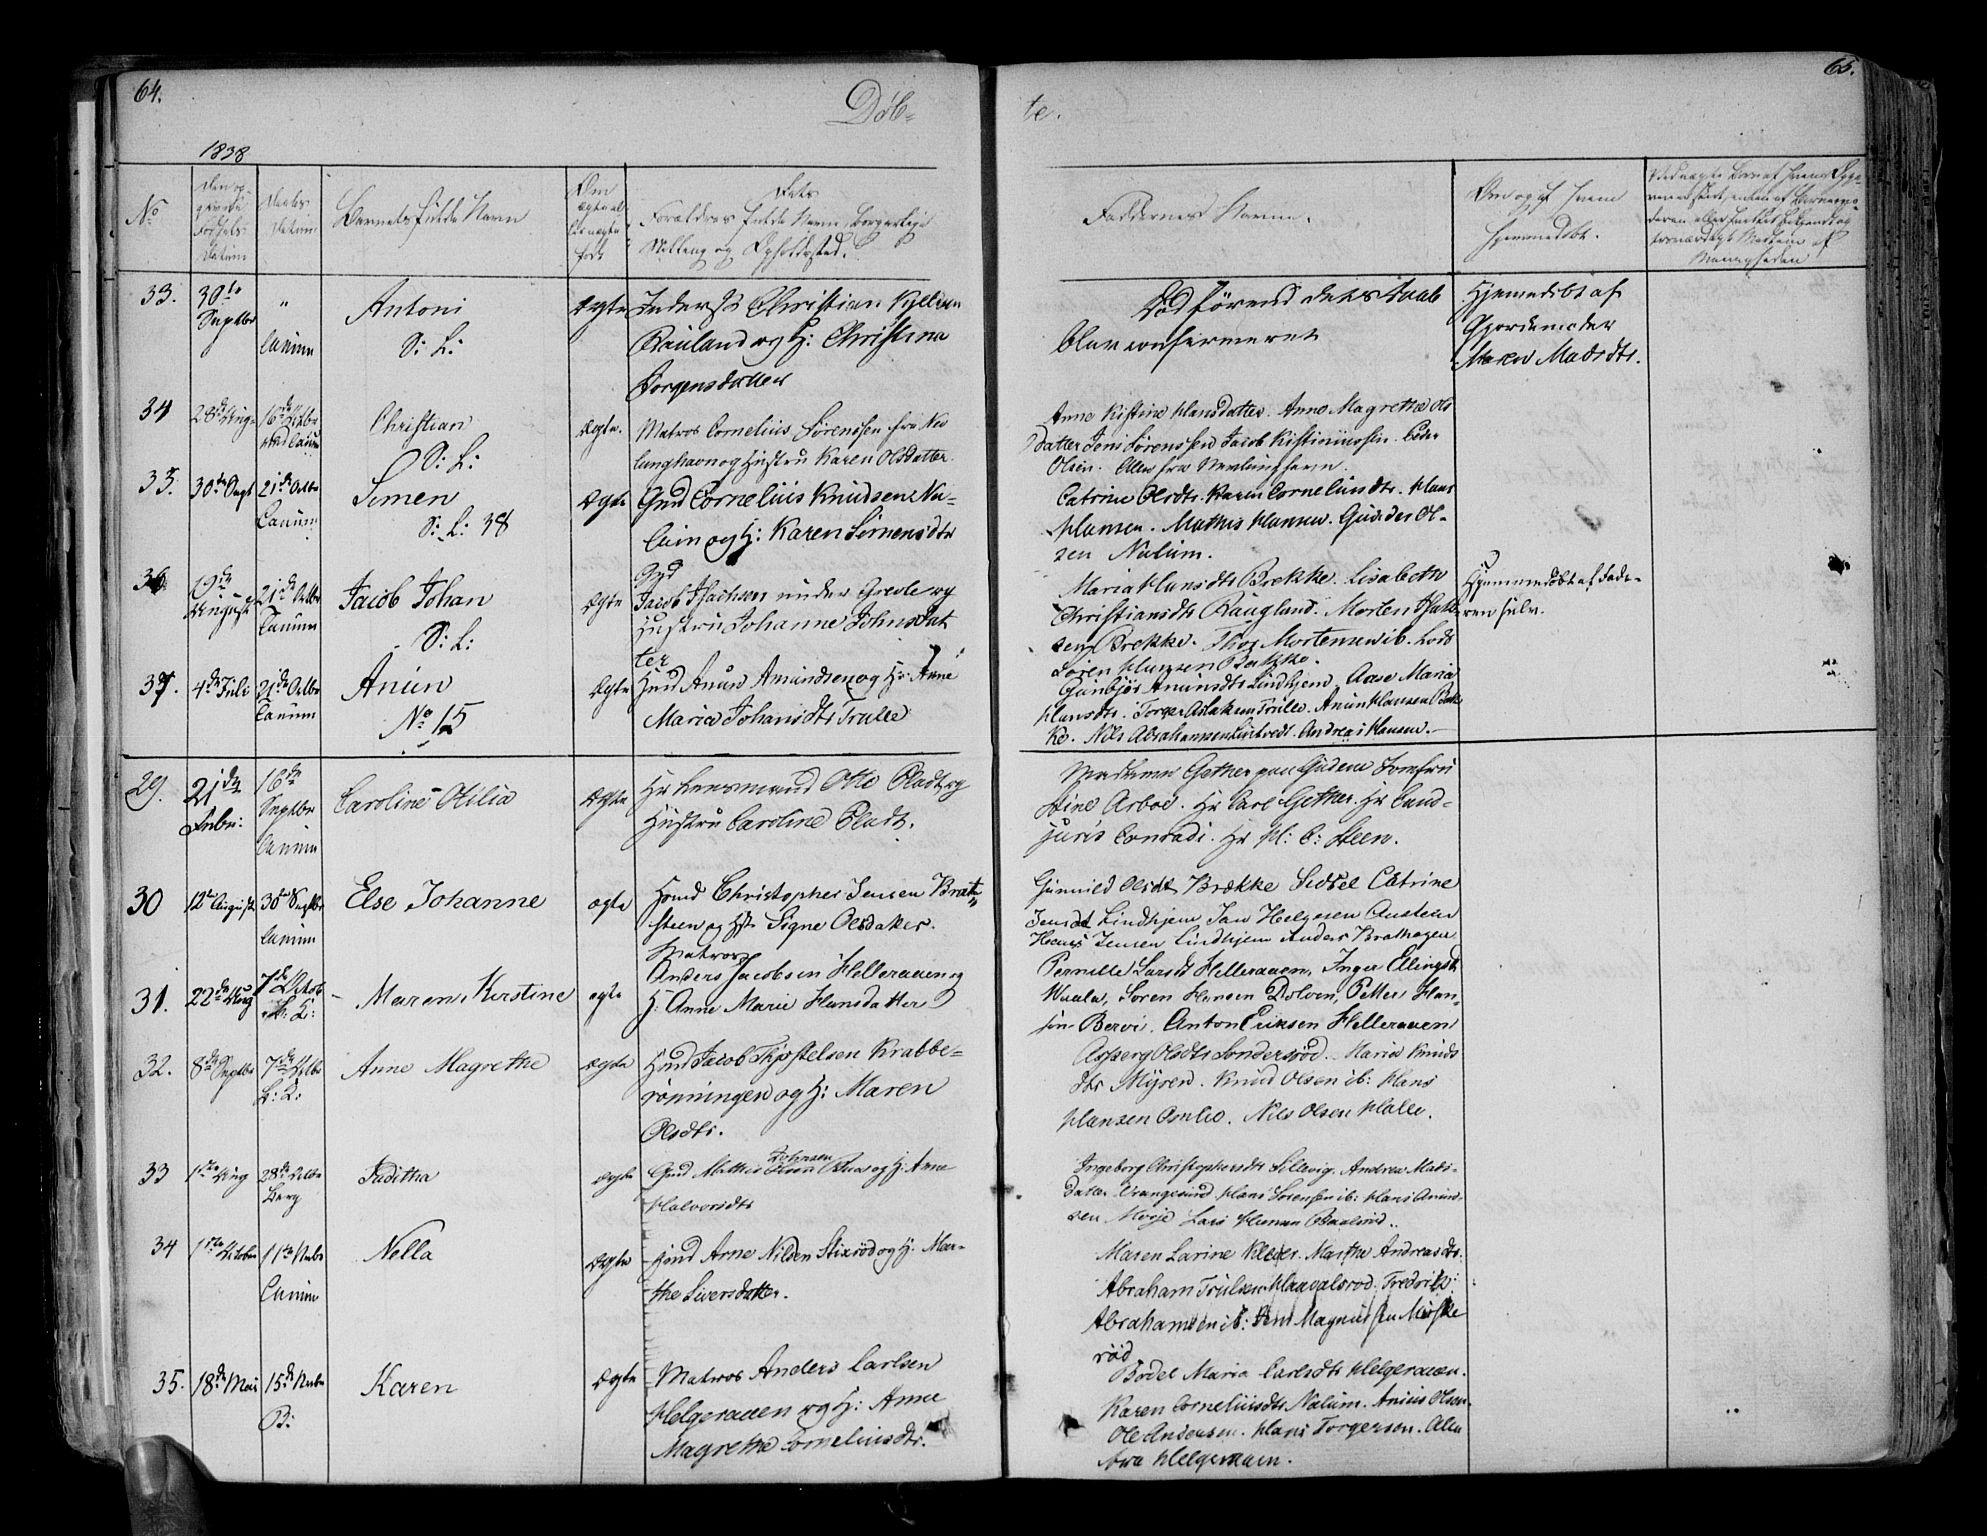 64.
Döb-
te.
65.
1838
No
Den og
Daabs
Datum
Barnets fulde Navn
Om
født
Forældres fulde Navn, Borgerlige
Stilling og Opholdssted.
Faddernes Navne.
Om og af hvem
hjemmedøbt.
Menigheden
33.
30te
Septbr
"
Tanum
Antoni
S: L:
Ægte
Inderst Christian
og H: Christina
Torgensdatter
Død førend dets Daab
blev confirmeret
Hjemedøbt af
Gjordemoder
Maren Madsdtr.
34
28de Aug.
16de Octbr
Christian
S: L:
Ægte.
Matros Cornelius Sørenssen fra Ne
lunghavn og Hustru Karen Olsdatter.
Anne Kistine Hansdatter. Anne Magrethe Ols
datter Jens Sørenssen Jacob
Olsen. Alle fra Nevlunghavn.
35.
30te Sept
21de Octbr
Tanum
Simen
S: L: 38
Ægte
Gmd Cornelius Knudsen Na-
lum og H: Karen Simensdtr
Catrine Olsdtr. Karen Corneliusdtr. Hans
Hansen. Mathis Hansen. Gunder Ol-
sen Nalum.
36
19de
August
21de Octbr
Tanum
Jacob Johan
S: L:
Ægte
Gmd
Jacob Isachsen under Grevle og
Hustru Johanne Johnsdat
ter
Maria Hansdtr Brekke. Lisabeth
Christiansdtr Baugland. Morten Isak
sen Brekke. Thor Mortensen ib. Lods
Søren Hansen Bakke.
Hjemmedøbt af Fade-
ren selv.
37.
4de Juli
21de Octbr
Tanum
Anun
No 15
Ægte
Hmd Anun Amundsen og H: Anne
Maria Johansdtr Trulle
Gunbjør Anunsdtr Lindhjem. Aase Maria
Hansdtr. Torger Aslaksen Trulle. Anun Hansen Bak
ke. Nils Abrahamsen. Andreas Hansen.
29.
21de
Febr:
16de
Septbr
Tanum
Caroline Otilia
Ægte
Hr Lensmand Otto Pladt og
Hustru Caroline Pladt.
Madame Gether paa Gudem Jomfru
Stine Arboe. Hr Carl Gether. Hr Cand-
juris Conradi. Hr H: C: Steen.
30
12te August
30te Septbr
Tanum
Else Johanne
ægte
Hsmd Christopher Jensen Brat-
steen og Hst. Signe Olsdatter.
Gunnild Olsdt. Brække Sidsel Catrine
Jensdt Lindhjem Jan Helgesen Austeen
Hans Jensen Lindhjem Anders Brathagen
31.
22de Aug
7de Octob
L: K:
Maren Kirstine
ægte
Matros
Anders Jacobsen Helleraaen og
H: Anne Marie Hansdatter
Pernille Larsdt Helleraaen, Inger Ellingsdt
Waale, Søren Hansen Dolven, Petter Han-
sen Bervi. Anton Eriksen Helleraaen
32.
8de Septbr
7de Octbr
L: K:
Anne Magrethe
Ægte
Hmd Jacob Thjostelsen Krabbe-
rønningen og H: Maren
Olsdtr.
Asberg Olsdtr Sondersrød. Maria Knuds
dtr Myren. Knud Olsen ib: Hans
Hansen Omlid. Nils Olsen Halle.
33
1ste Aug
28de Octbr
Berg
Juditha
Ægte
Gmd Mathis Johnsen og H: Anne
Halvorsdtr
Ingeborg Christophersdtr Sillevig. Andrea Mads-
datter Vrangesund. Hans Sørensen ib: Hans Anund-
sen Morje Lars Hansen
34
1ste October
11te Novbr
Tanum
Nella
Ægte
Hmd Arne Nilsen Stixrød og H. Mar-
the Siversdatter.
Maren Larine Kleser. Marthe Andreasdtr.
Abraham Trulsen Haavalsrød. Fredrik
Abrahamsen ib: Jens Magnussen Møske
rød
35.
18de Mai
15de Novbr
B:
Karen
Ægte
Matros Anders Carlsen
Helgeraaen og H: Anne
Magrethe Corneliusdtr.
Bodel Maria Carlsdtr Helgeraaen.
Karen Corneliusdtr Nalum. Anuis Olsen.
Ole Andersen. Hans Torgersen. Alle
fra Helgeraaen.